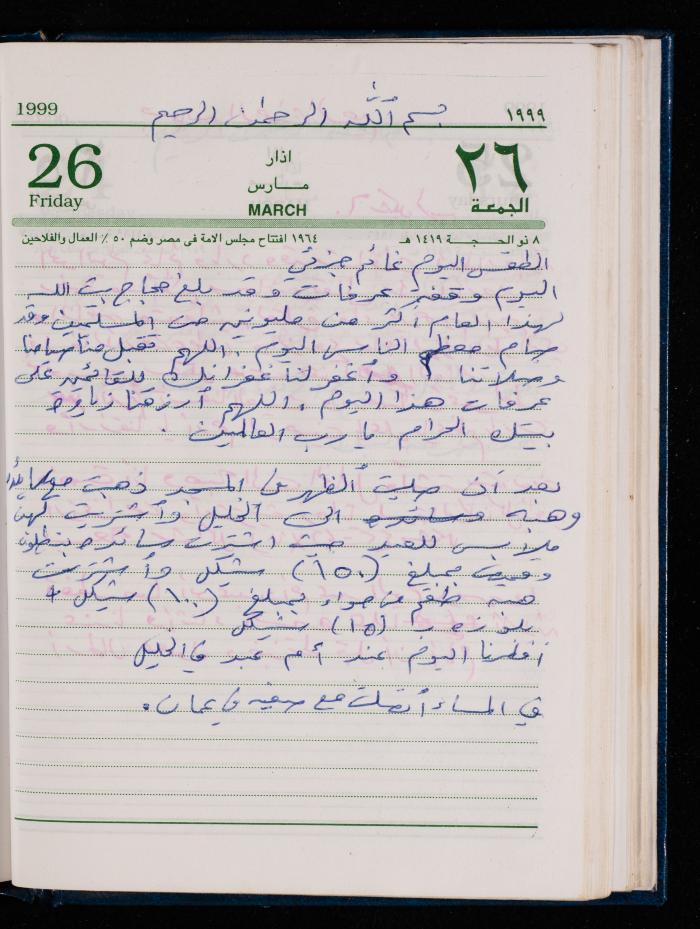 بسم الله الرحمن الرحيم
1999
١٩٩٩
26
Friday
اذار
مارس
MARCH
٢٦
الجمعة
٨ ذو الحجة ١٤١٩ هـ
١٩٦٤ افتتاح مجلس الامة فى مصر وضم ٥٠ ٪ العمال والفلاحين
الطقس اليوم غائم جزئي
اليوم وقفة عرفات وقد بلغ حجاج بيت الله
لهذا العام أكثر من مليونين من المسلمين وقد
صام معظم الناس اليوم . اللهم تقبل منا صيامنا
وصلاتنا وأغفر لنا غفرانك للقائمين على
عرفات هذا اليوم . اللهم ارزقنا زيارة
بيتك الحرام يا رب العالمين .
بعد أن صليت الظهر في المسجد ذهبت مع
وهبه الى الخليل وأشتريت لهن
ملابس للعيد حيث اشترت سائده بنطلون
وقميص بمبلغ (١٥٠) شيكل وأشترت
هبه طقم من حواء بمبلغ (١٠٠) شيكل +
بلوزه ب (١٥) شيكل
أفطرنا اليوم عند أم عبد في الخليل
في المساء أتصلت مع صفيه في عمان .